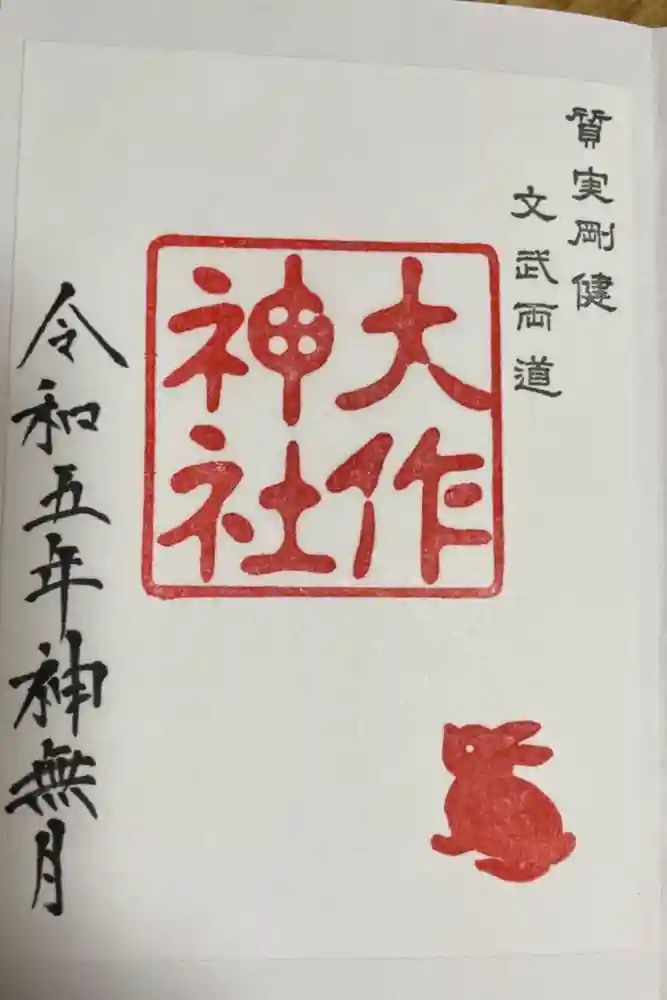 質実剛健
文武両道
大作
神社
令和五年神無月